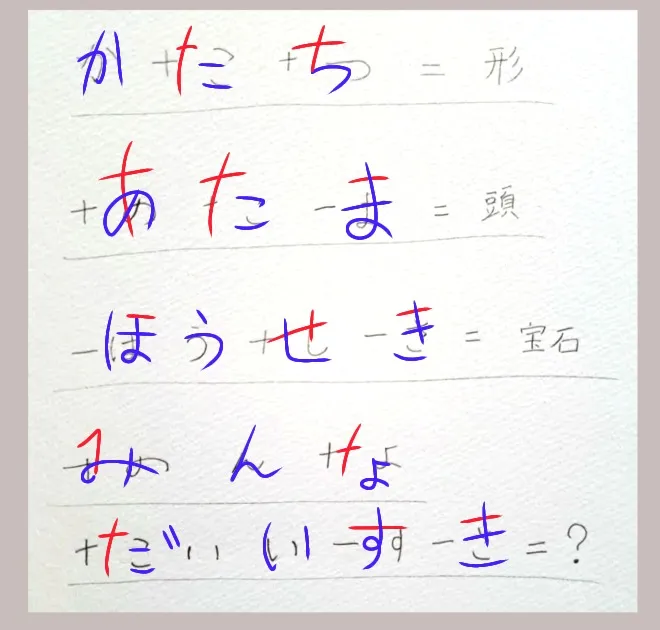 か +た +ち = 形
+あ た -ま = 頭
-ほ う +せ -き = 宝石
み ん +な
+だ い -す -き = ?